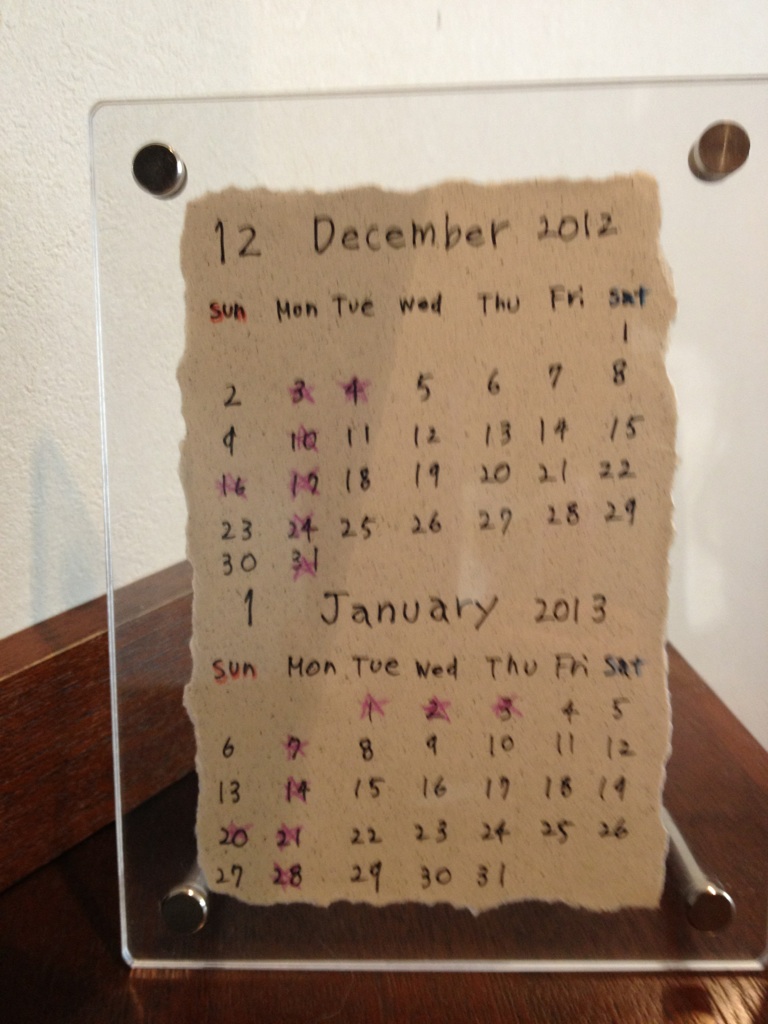 12 December 2012
Sun Mon Tue Wed Thu Fri Sat
1
2 3 4 5 6 7 8
9 10 11 12 13 14 15
16 17 18 19 20 21 22
23 24 25 26 27 28 29
30 31
1 January 2013
Sun Mon Tue Wed Thu Fri Sat
1 2 3 4 5
6 7 8 9 10 11 12
13 14 15 16 17 18 19
20 21 22 23 24 25 26
27 28 29 30 31